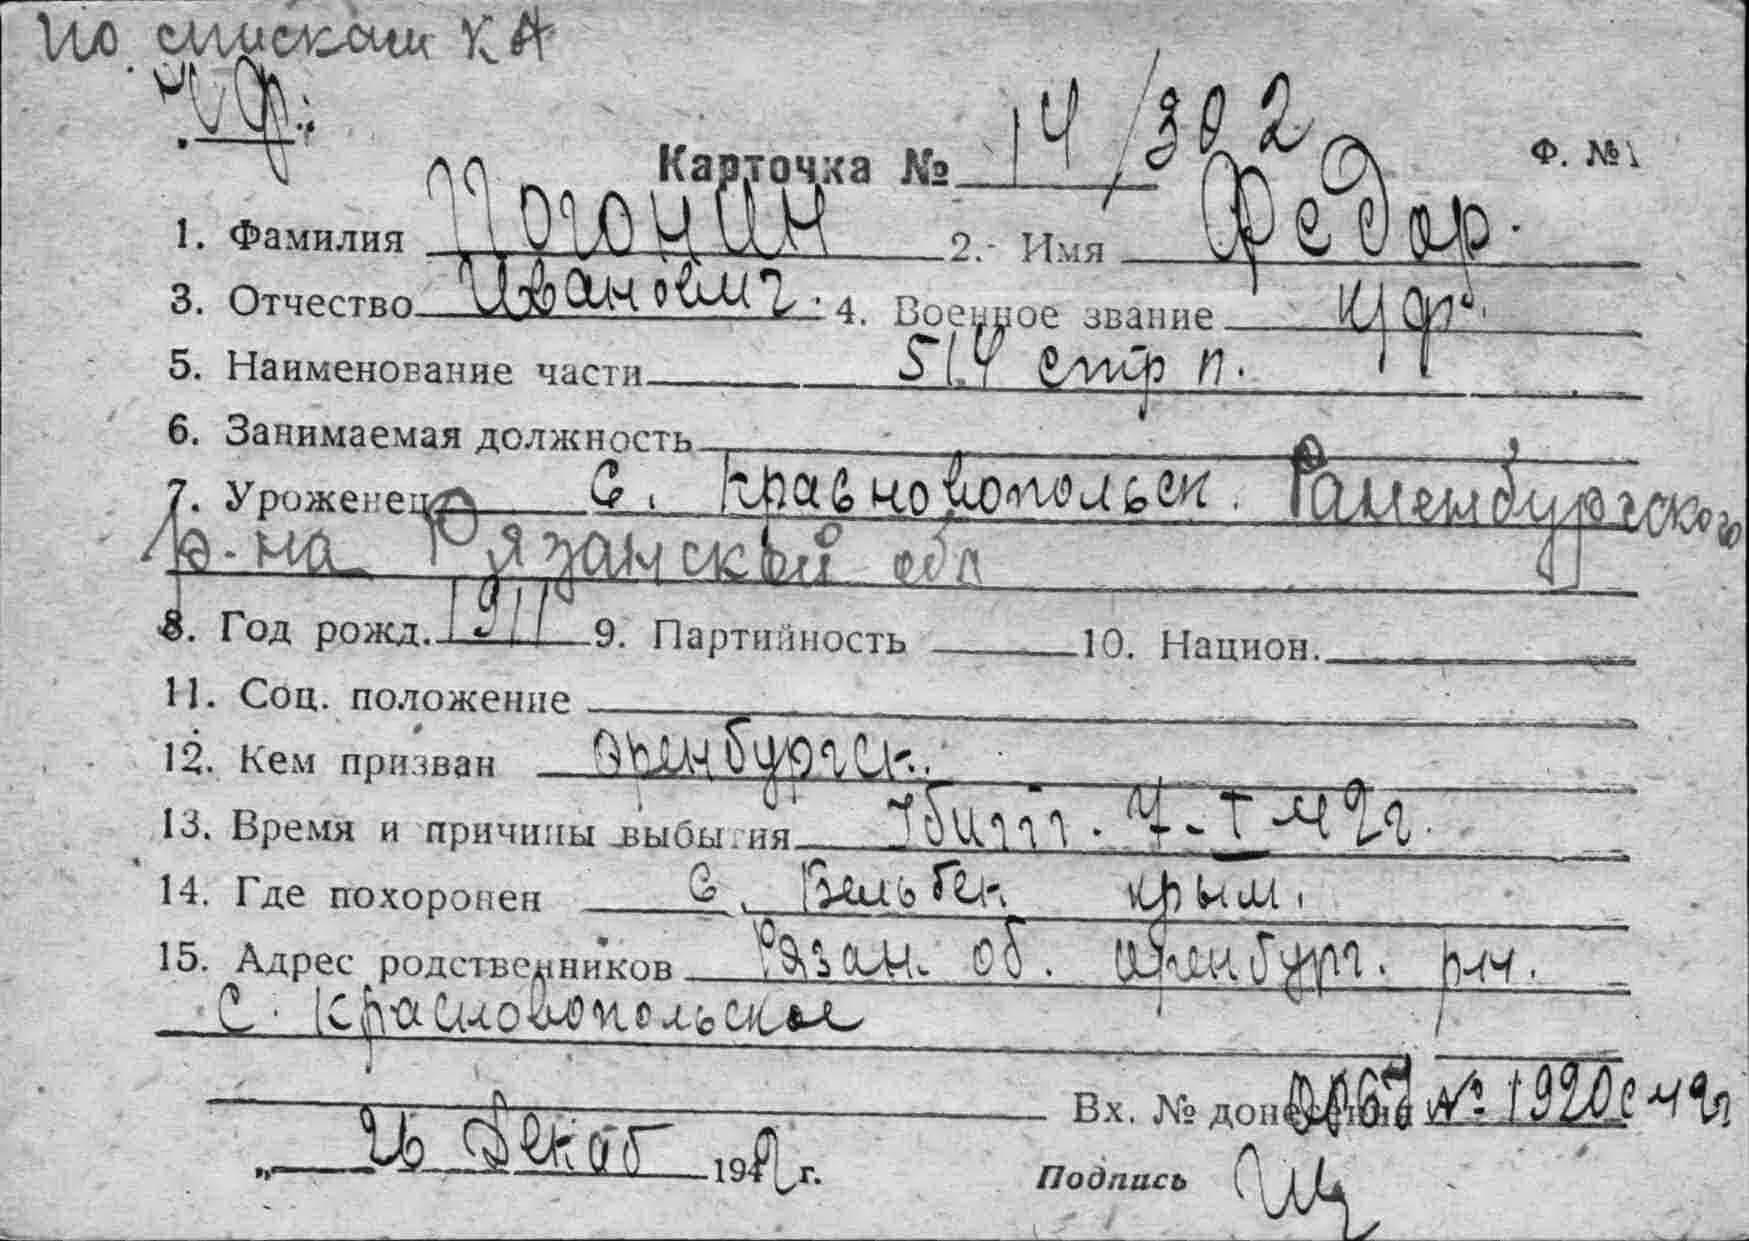 по спискам КА
Карточка № 14/302 Ф. №1
1. Фамилия Погонин 2. Имя Федор.
3. Отчество Иванович. 4. Военное звание
5. Наименование части 514 стр п.
6. Занимаемая должность
7. Уроженец с. Красновопольск. Раненбургского
р-на Рязанской обл
8. Год рожд. 1911 9. Партийность 10. Национ.
11. Соц. положение
12. Кем призван
13. Время и причины выбытия Убит 7-I-42г.
14. Где похоронен с. Бельбек Крым.
15. Адрес родственников Рязан. об. р-н.
с. Красновопольское
Вх. № донесения № 1920с 42г
„ 26 Декаб 1942 г. Подпись